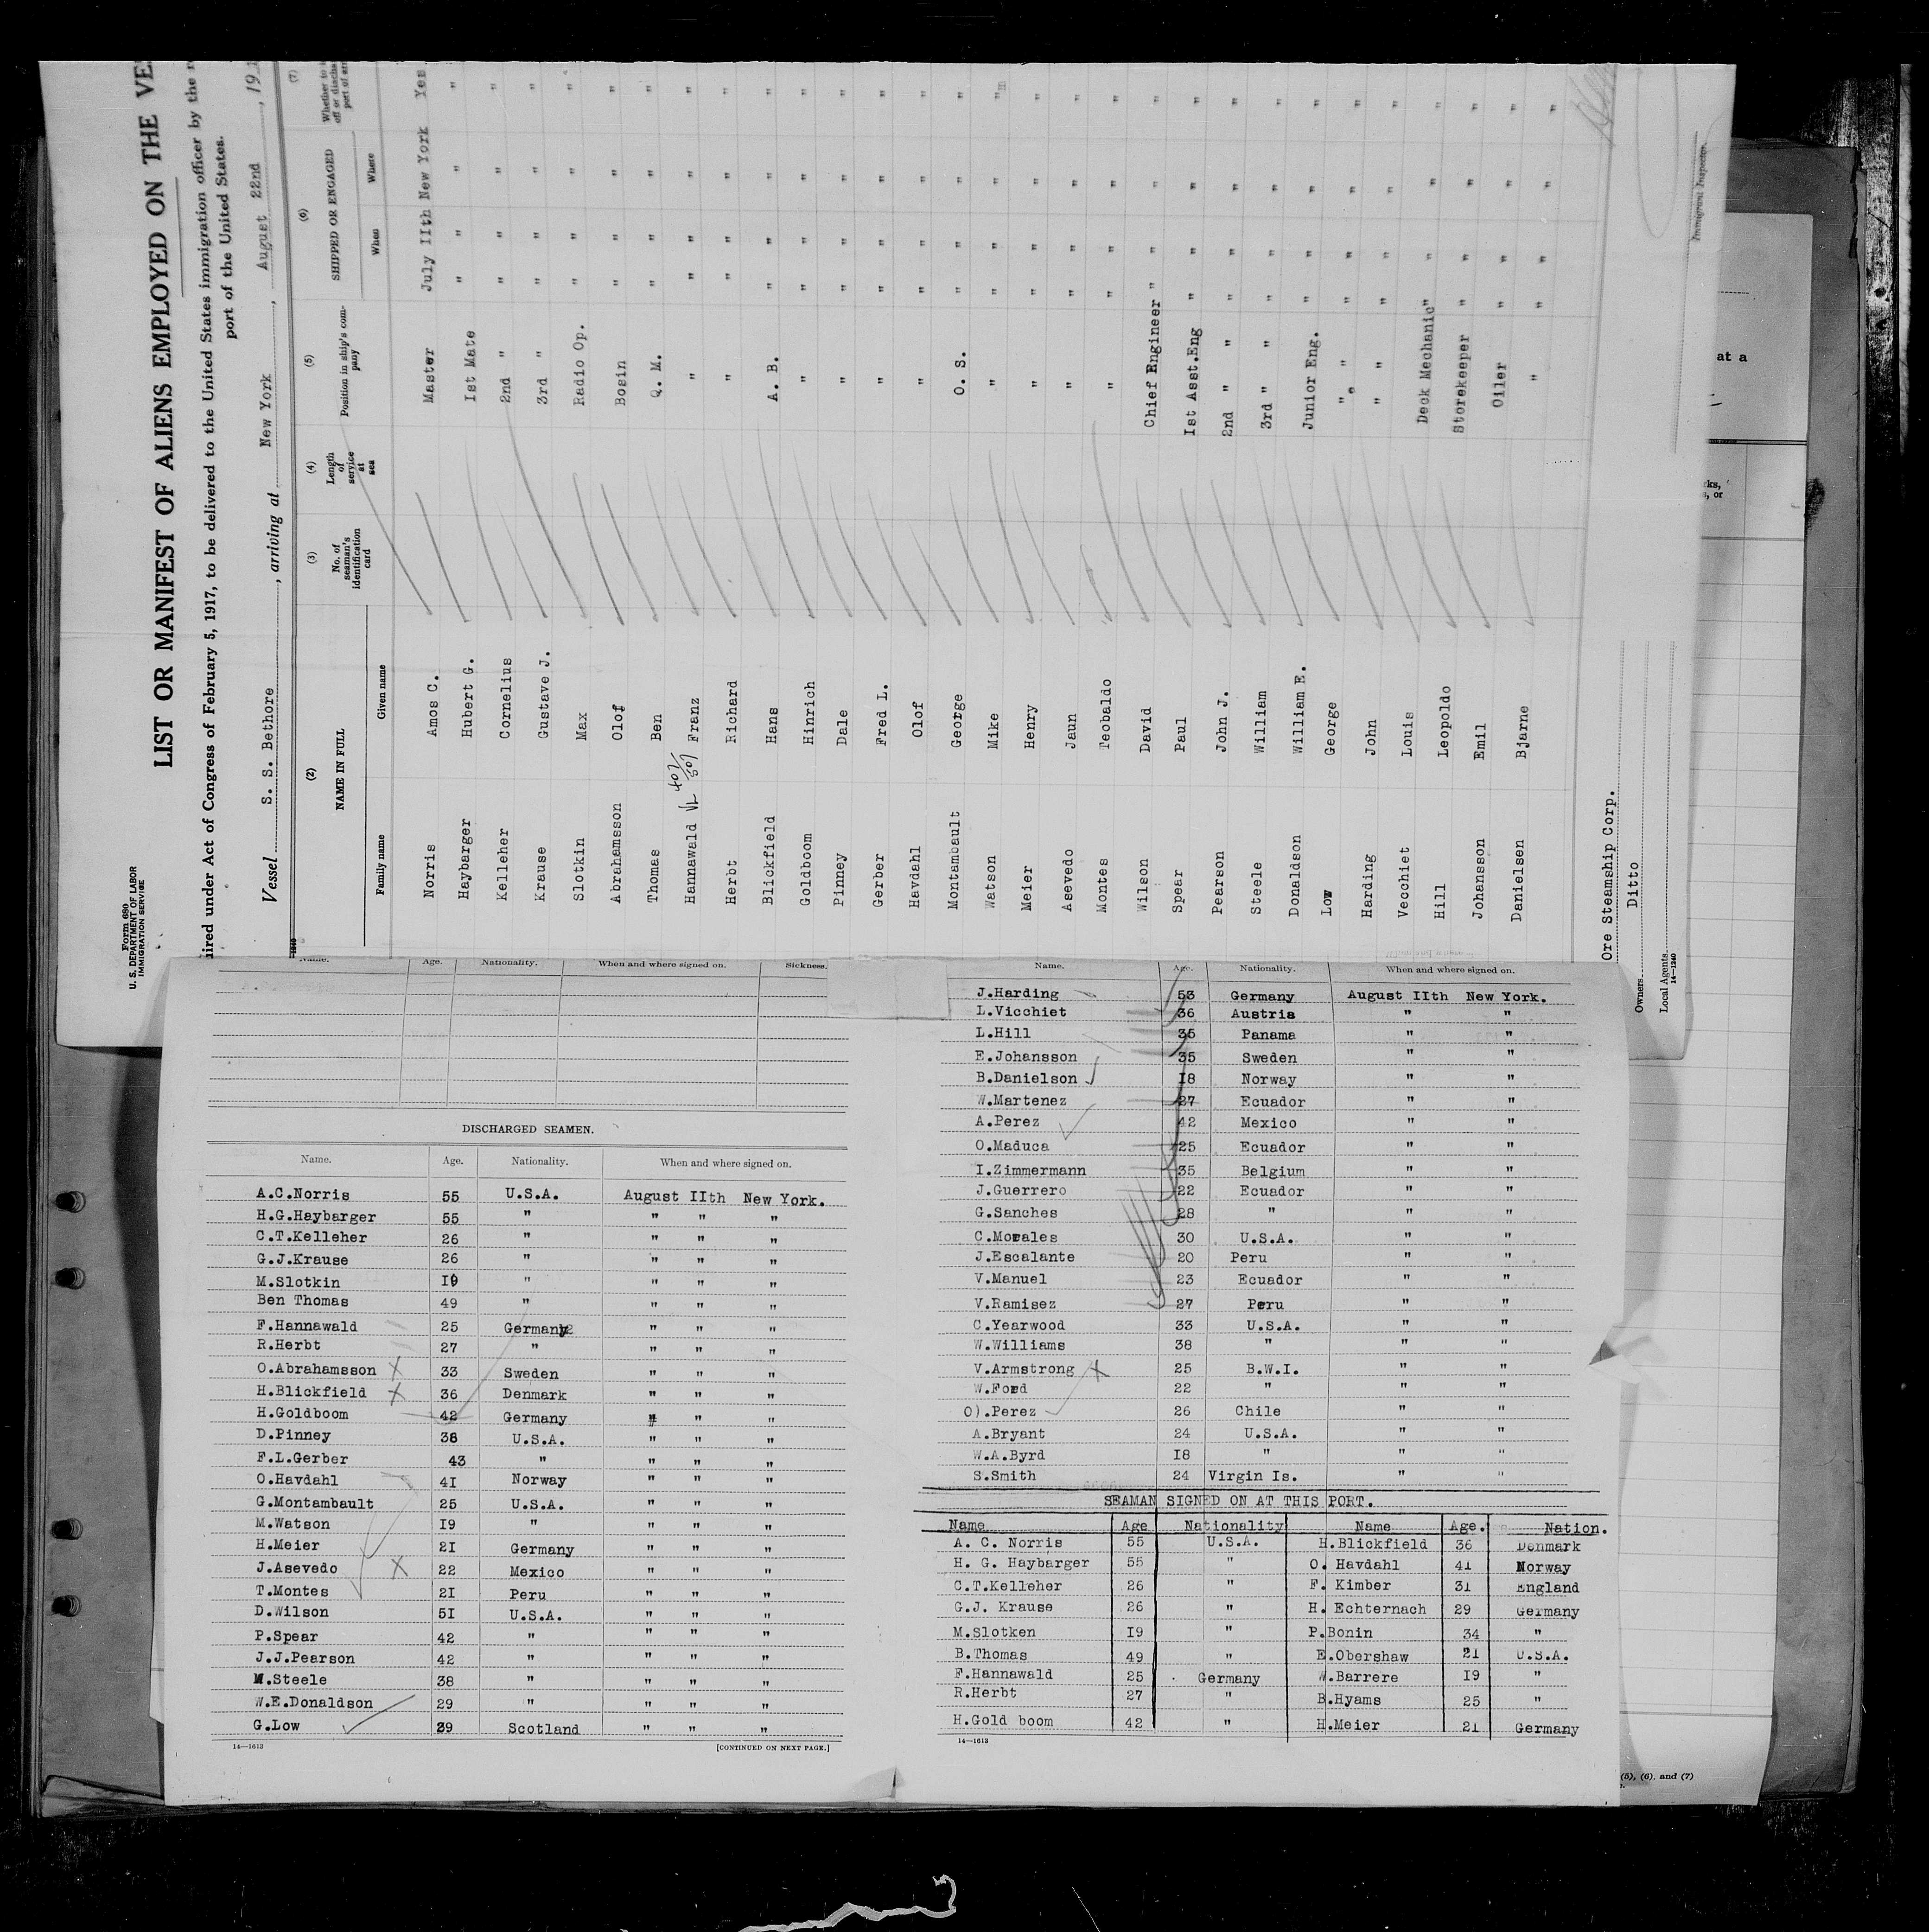 Form 680
U. S. DEPARTMENT OF LABOR
IMMIGRATION SERVICE
LIST OR MANIFEST OF ALIENS EMPLOYED ON THE
ired under Act of Congress of February 5, 1917, to be delivered to the United States immigration officer by the
port of the United States.
Vessel S. S. Bethore, arriving at New York, August 22nd, 19
(2) (3) (4) (5) (6) (7)
NAME IN FULL No. of seaman's identification card Length of service at sea Position in ship's company SHIPPED OR ENGAGED
Family name Given name When Where
Norris Amos C. Master July IIth New York Yes
Haybarger Hubert G. Ist Mate " " " "
Kelleher Cornelius 2nd " " " " "
Krause Gustave J. 3rd " " " " "
Slotkin Max Radio Op. " " " "
Abrahamsson Olof Bosin " " " "
Thomas Ben Q. M. " " " "
Hannawald Franz " " " " "
Herbt Richard " " " " "
Blickfield Hans A. B. " " " "
Goldboom Hinrich " " " " "
Pinney Dale " " " " "
Gerber Fred L. " " " " "
Havdahl Olof " " " " "
Montambault George O. S. " " " "
Watson Mike " " " " "
Meier Henry " " " " "
Asevedo Jaun " " " " "
Montes Teobaldo " " " " "
Wilson David Chief Engineer " " " "
Spear Paul Ist Asst.Eng " " " "
Pearson John J. 2nd " " " " " "
Steele William 3rd " " " " " "
Donaldson William E. Junior Eng. " " " "
Low George " " " " " "
Harding John " " " " " "
Vecchiet Louis Deck Mechanic" " " "
Hill Leopoldo Storekeeper " " " "
Johansson Emil Oiler " " " "
Danielsen Bjarne " " " " "
ore Steamship Corp.
Owners Ditto
Local Agents
14—1240
Immigrant Inspector.
at a
rks,
s, or
(5), (6), and (7)
Name. Age. Nationality. When and where signed on. Sickness.
DISCHARGED SEAMEN.
Name. Age. Nationality. When and where signed on.
A.C.Norris 55 U.S.A. August IIth New York.
H.G.Haybarger 55 " " " "
C.T.Kelleher 26 " " " "
G.J.Krause 26 " " " "
M.Slotkin I9 " " " "
Ben Thomas 49 " " " "
F.Hannawald 25 Germany " " "
R.Herbt 27 " " " "
O.Abrahamsson 33 Sweden " " "
H.Blickfield 36 Denmark " " "
H.Goldboom 42 Germany " " "
D.Pinney 38 U.S.A. " " "
F.L.Gerber 43 " " " "
O.Havdahl 4I Norway " " "
G.Montambault 25 U.S.A. " " "
M.Watson I9 " " " "
H.Meier 2I Germany " " "
J.Asevedo 22 Mexico " " "
T.Montes 2I Peru " " "
D.Wilson 5I U.S.A. " " "
P.Spear 42 " " " "
J.J.Pearson 42 " " " "
M.Steele 38 " " " "
W.E.Donaldson 29 " " " "
G.Low 39 Scotland " " "
14—1613 [CONTINUED ON NEXT PAGE.]
Name. Age. Nationality. When and where signed on.
J.Harding 53 Germany August IIth New York.
L.Vicchiet 36 Austria " "
L.Hill 36 Panama " "
E.Johansson 35 Sweden " "
B.Danielson I8 Norway " "
W.Martenez 27 Ecuador " "
A.Perez 42 Mexico " "
O.Maduca 25 Ecuador " "
I.Zimmermann 35 Belgium " "
J.Guerrero 22 Ecuador " "
G.Sanches 28 " " "
C.Morales 30 U.S.A. " "
J.Escalante 20 Peru " "
V.Manuel 23 Ecuador " "
V.Ramisez 27 Peru " "
C.Yearwood 33 U.S.A. " "
W.Williams 38 " " "
V.Armstrong 25 B.W.I. " "
W.Ford 22 " " "
O).Perez 26 Chile " "
A.Bryant 24 U.S.A. " "
W.A.Byrd I8 " " "
S.Smith 24 Virgin Is. " "
SEAMAN SIGNED ON AT THIS PORT.
Name Age Nationality Name Age. Nation.
A. C. Norris 55 U.S.A. H.Blickfield 36 Denmark
H. G. Haybarger 55 " O. Havdahl 41 Norway
C.T.Kelleher 26 " F. Kimber 31 England
G.J. Krause 26 " H. Echternach 29 Germany
M.Slotken I9 " P.Bonin 34 "
B.Thomas 49 " E.Obershaw 21 U.S.A.
F.Hannawald 25 Germany W.Barrere I9 "
R.Herbt 27 " B.Hyams 25 "
H.Gold boom 42 " H.Meier 21 Germany
14—1613